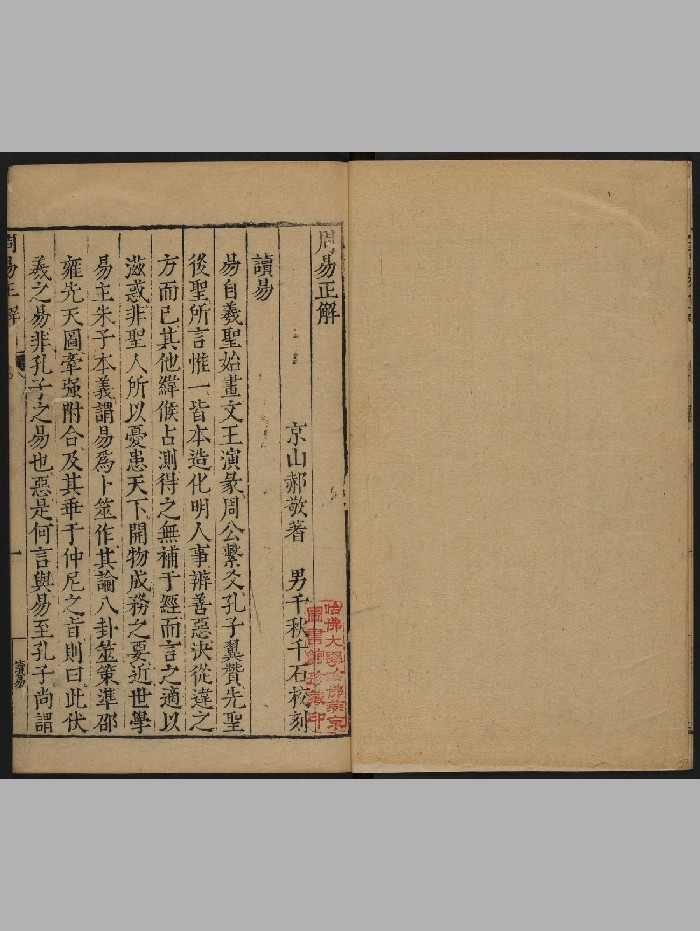 周易正解
京山郝敬著　男千秋千石校刻
讀易
易自羲聖始畫文王演彖周公繫爻孔子翼贊先聖
後聖所言惟一皆本造化明人事辨善惡決從違之
方而已其他緯候占測得之無補于經而言之適以
滋惑非聖人所以憂患天下開物成務之要近世學
易主朱子本義謂易爲卜筮作其論八卦筮策準邵
雍先天圖牽强附合及其乖于仲尼之旨則曰此伏
羲之易非孔子之易也惡是何言與易至孔子尚謂
周易正解
一
讀易
哈佛大學哈佛燕京
圖書館珍藏印